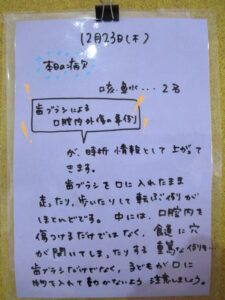 12月23日(木)
本日の病欠
咳・鼻水… 2名
歯ブラシによる
口腔内外傷の事例
が、時折 情報として上がって
きます。
歯ブラシを口に入れたまま
走ったり、歩いたりして転ぶ例が
ほとんどです。中には、口腔内を
傷つけるだけではなく、食道に穴
が開いてしまったりする重篤な例も…
歯ブラシだけでなく、子どもが口に
物を入れて動かないよう 注意しましょう。